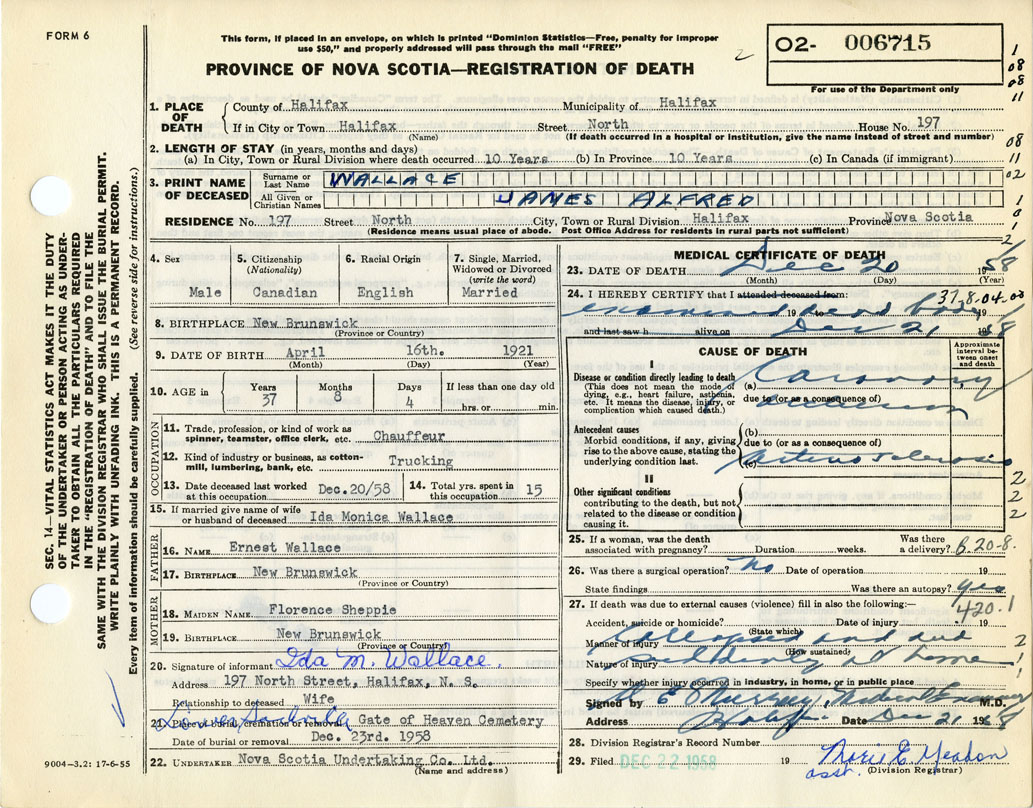 FORM 6
This form, if placed in an envelope, on which is printed "Dominion Statistics—Free, penalty for improper
use $50," and properly addressed will pass through the mail "FREE"
2
O2- 006715
For use of the Department only
PROVINCE OF NOVA SCOTIA—REGISTRATION OF DEATH
1
08
08
11
08
11
02
1
0
1
2
SEC. 14—VITAL STATISTICS ACT MAKES IT THE DUTY
OF THE UNDERTAKER OR PERSON ACTING AS UNDER-
TAKER TO OBTAIN ALL THE PARTICULARS REQUIRED
IN THE "REGISTRATION OF DEATH" AND TO FILE THE
SAME WITH THE DIVISION REGISTRAR WHO SHALL ISSUE THE BURIAL PERMIT.
WRITE PLAINLY WITH UNFADING INK. THIS IS A PERMANENT RECORD.
Every item of information should be carefully supplied. (See reverse side for instructions.)
9004—3.2: 17-6-55
1. PLACE OF DEATH
County of Halifax Municipality of Halifax
If in City or Town Halifax Street North House No. 197
(Name) (If death occurred in a hospital or institution, give the name instead of street and number)
2. LENGTH OF STAY (in years, months and days)
(a) In City, Town or Rural Division where death occurred 10 Years (b) In Province 10 Years (c) In Canada (if immigrant)
3. PRINT NAME OF DECEASED
Surname or Last Name WALLACE
All Given or Christian Names JAMES ALFRED
RESIDENCE No. 197 Street North City, Town or Rural Division Halifax Province Nova Scotia
(Residence means usual place of abode. Post Office Address for residents in rural parts not sufficient)
4. Sex
Male
5. Citizenship
(Nationality)
Canadian
6. Racial Origin
English
7. Single, Married,
Widowed or Divorced
(write the word)
Married
8. BIRTHPLACE New Brunswick
(Province or Country)
9. DATE OF BIRTH April 16th. 1921
(Month) (Day) (Year)
10. AGE in
Years 37
Months 8
Days 4
If less than one day old
hrs. or min.
OCCUPATION
11. Trade, profession, or kind of work as
spinner, teamster, office clerk, etc. Chauffeur
12. Kind of industry or business, as cotton-
mill, lumbering, bank, etc. Trucking
13. Date deceased last worked
at this occupation Dec.20/58
14. Total yrs. spent in
this occupation 15
15. If married give name of wife
or husband of deceased Ida Monica Wallace
FATHER
16. NAME Ernest Wallace
17. BIRTHPLACE New Brunswick
(Province or Country)
MOTHER
18. MAIDEN NAME Florence Sheppie
19. BIRTHPLACE New Brunswick
(Province or Country)
20. Signature of informant Ida M. Wallace.
Address 197 North Street, Halifax, N. S.
Relationship to deceased Wife
21. Place of burial, cremation or removal Gate of Heaven Cemetery
Lower Sackville
Date of burial or removal Dec. 23rd. 1958
22. UNDERTAKER Nova Scotia Undertaking Co. Ltd.
(Name and address)
MEDICAL CERTIFICATE OF DEATH
23. DATE OF DEATH Dec 20 1958
(Month) (Day) (Year)
24. I HEREBY CERTIFY that I attended deceased from:
37.8.04.00
examined dead body
19 to 19
and last saw h alive on Dec 21 1958
CAUSE OF DEATH
Approximate
interval be-
tween onset
and death
I
Disease or condition directly leading to death
(This does not mean the mode of
dying, e.g., heart failure, asthenia,
etc. It means the disease, injury, or
complication which caused death.)
(a) Coronary
due to (or as a consequence of)
Antecedent causes
Morbid conditions, if any, giving
rise to the above cause, stating the
underlying condition last.
(b)
due to (or as a consequence of)
(c) Arteriosclerosis
II
Other significant conditions
contributing to the death, but not
related to the disease or condition
causing it.
2
2
2
25. If a woman, was the death
associated with pregnancy? Duration weeks. Was there
a delivery?
20-8.
26. Was there a surgical operation? No Date of operation 19
State findings Was there an autopsy? Yes
27. If death was due to external causes (violence) fill in also the following:—
420.1
Accident, suicide or homicide? Date of injury 19
(State which)
Manner of injury Collapsed and died
(How sustained)
2
Nature of injury suddenly at home
1
Specify whether injury occurred in industry, in home, or in public place
1
Signed by M.D.
Address Date Dec 21 1958
28. Division Registrar's Record Number
29. Filed DEC 22 1958 19
asst. (Division Registrar)